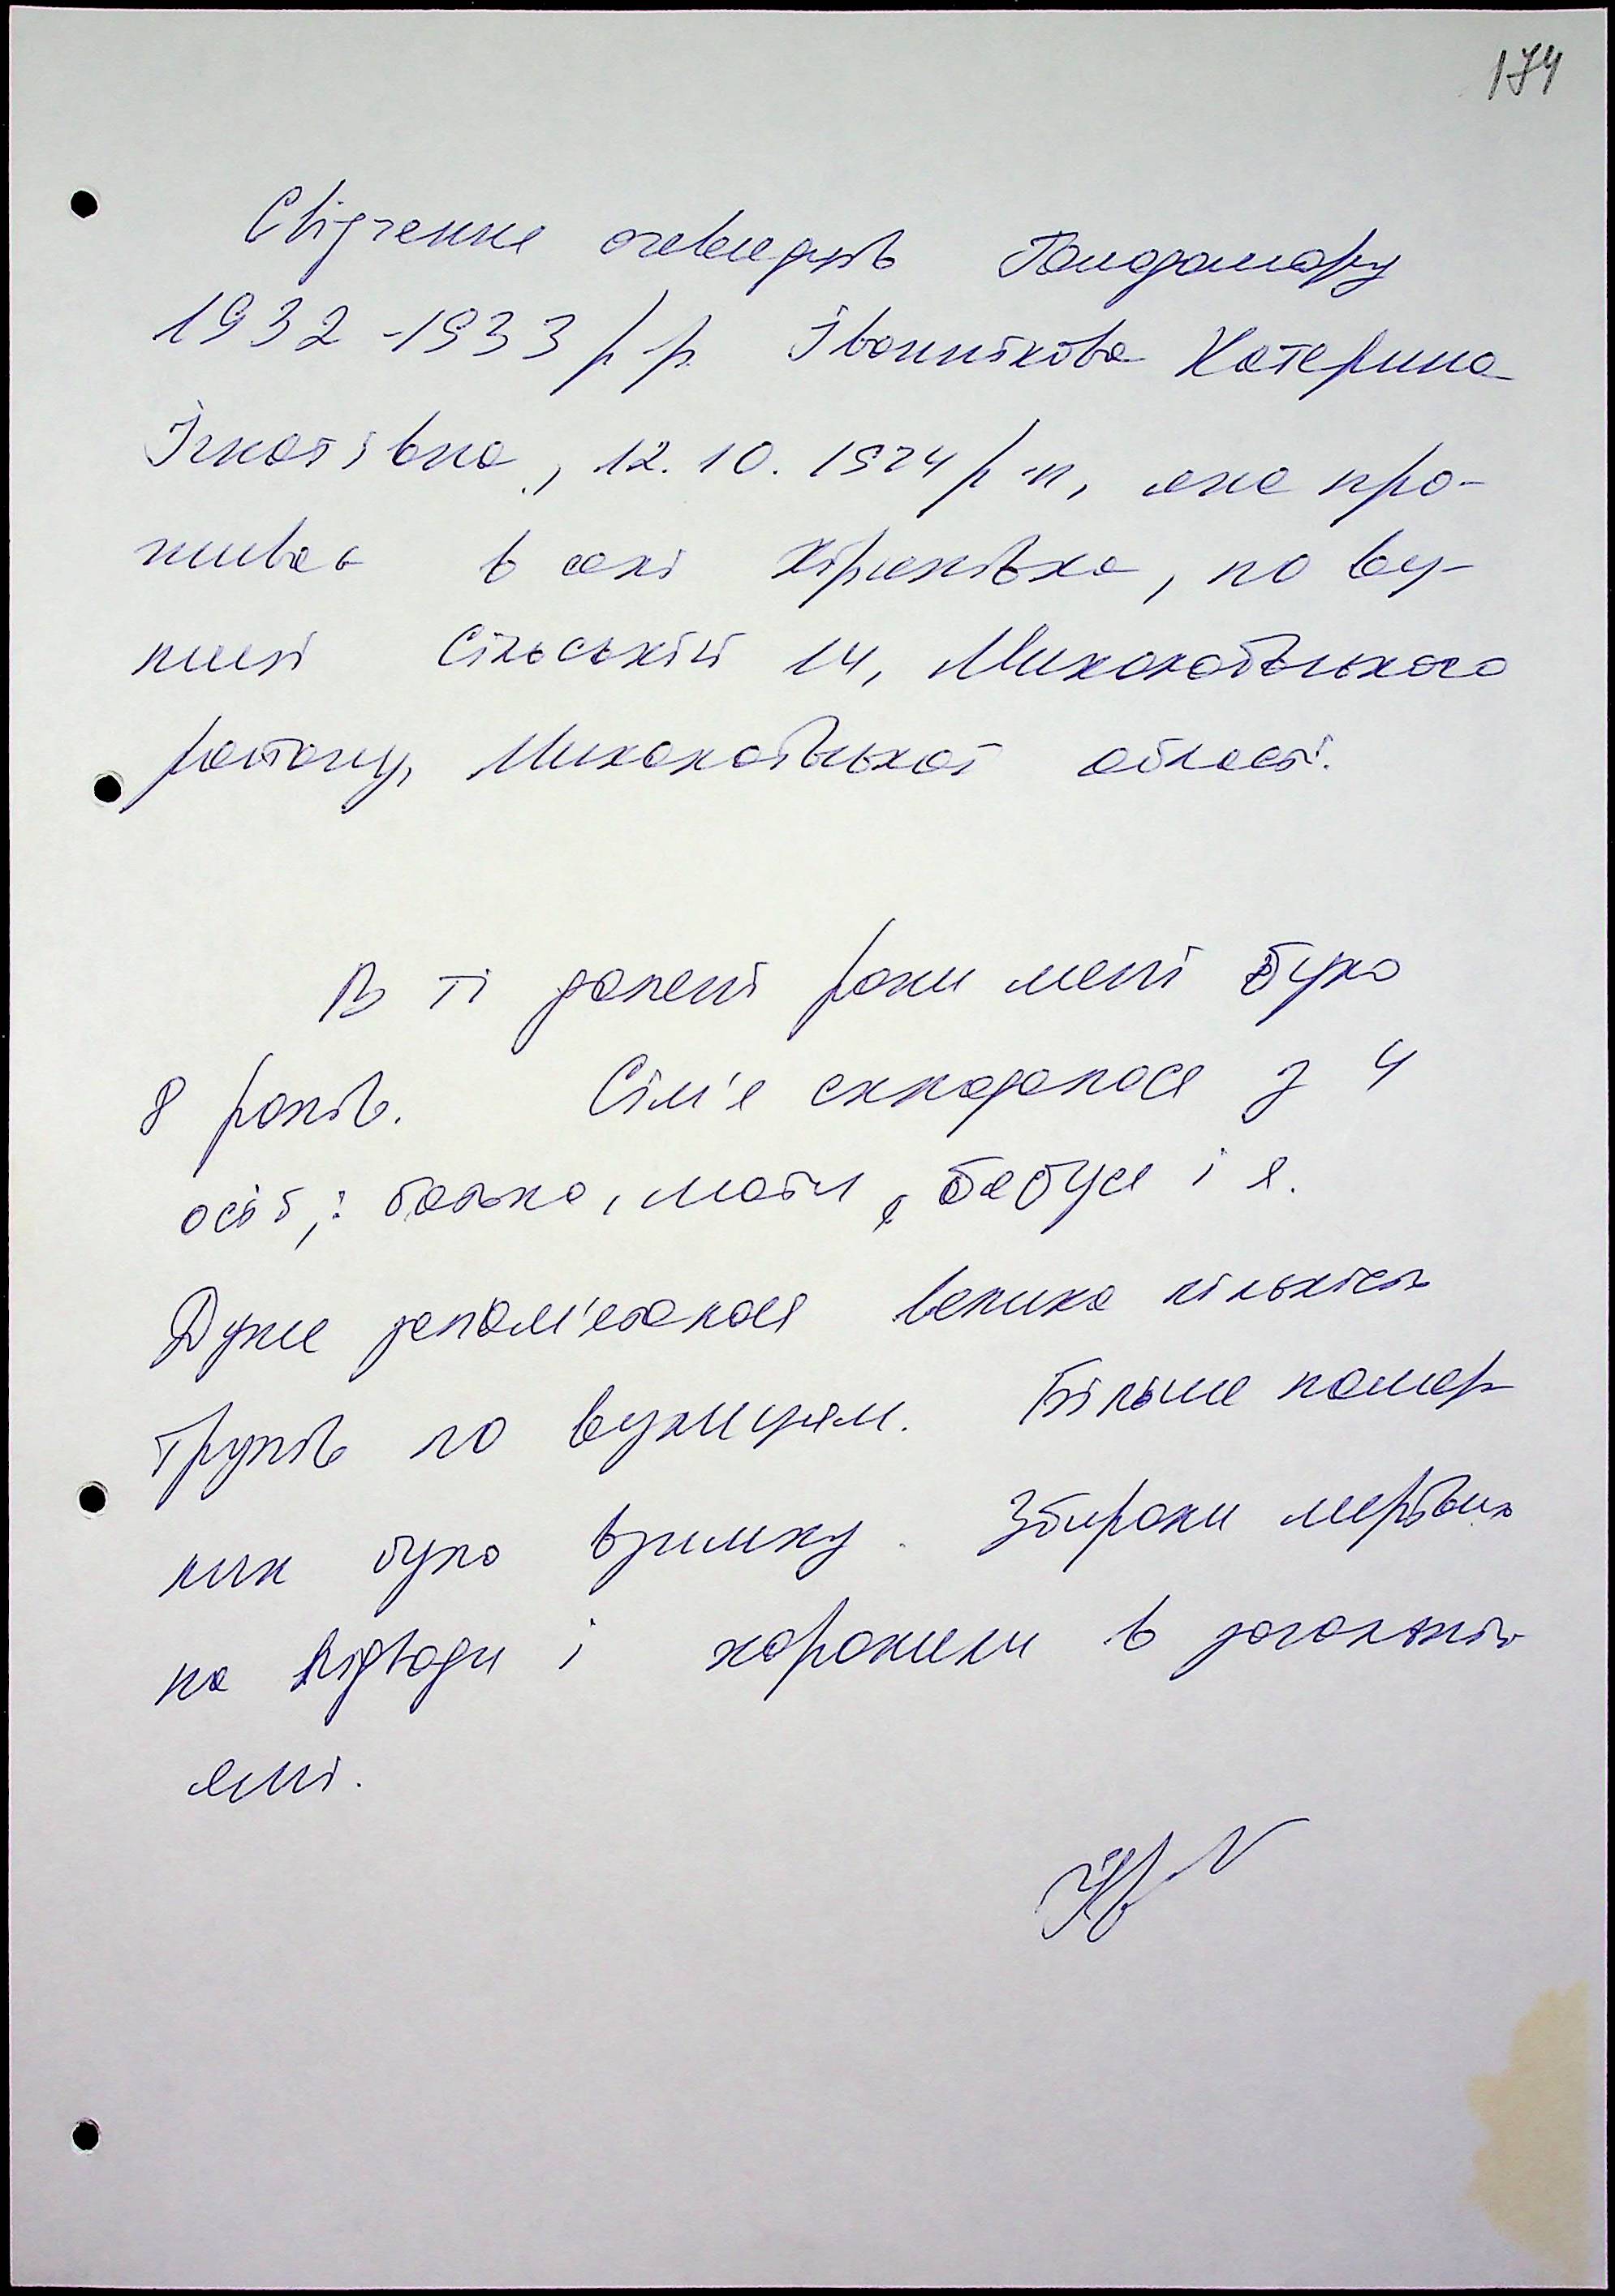 174
Свідчення очевидців Голодомору
1932-1933 р.р. Іваннікова Катерина
Ігнатівна, 12.10.1924 р.н, яка про-
живає в селі Кір'яківка, по ву-
лиці Сільській 14, Миколаївського
району, Миколаївської області.
В ті далекі роки мені було
8 років. Сім'я складалася з 4
осіб,: батько, мати, бабуся і я.
Дуже запам'яталася велика кількість
трупів по вулицям. Більше помер-
лих було взимку. Збирали мертвих
на підводи і хоронили в загальній
ямі.